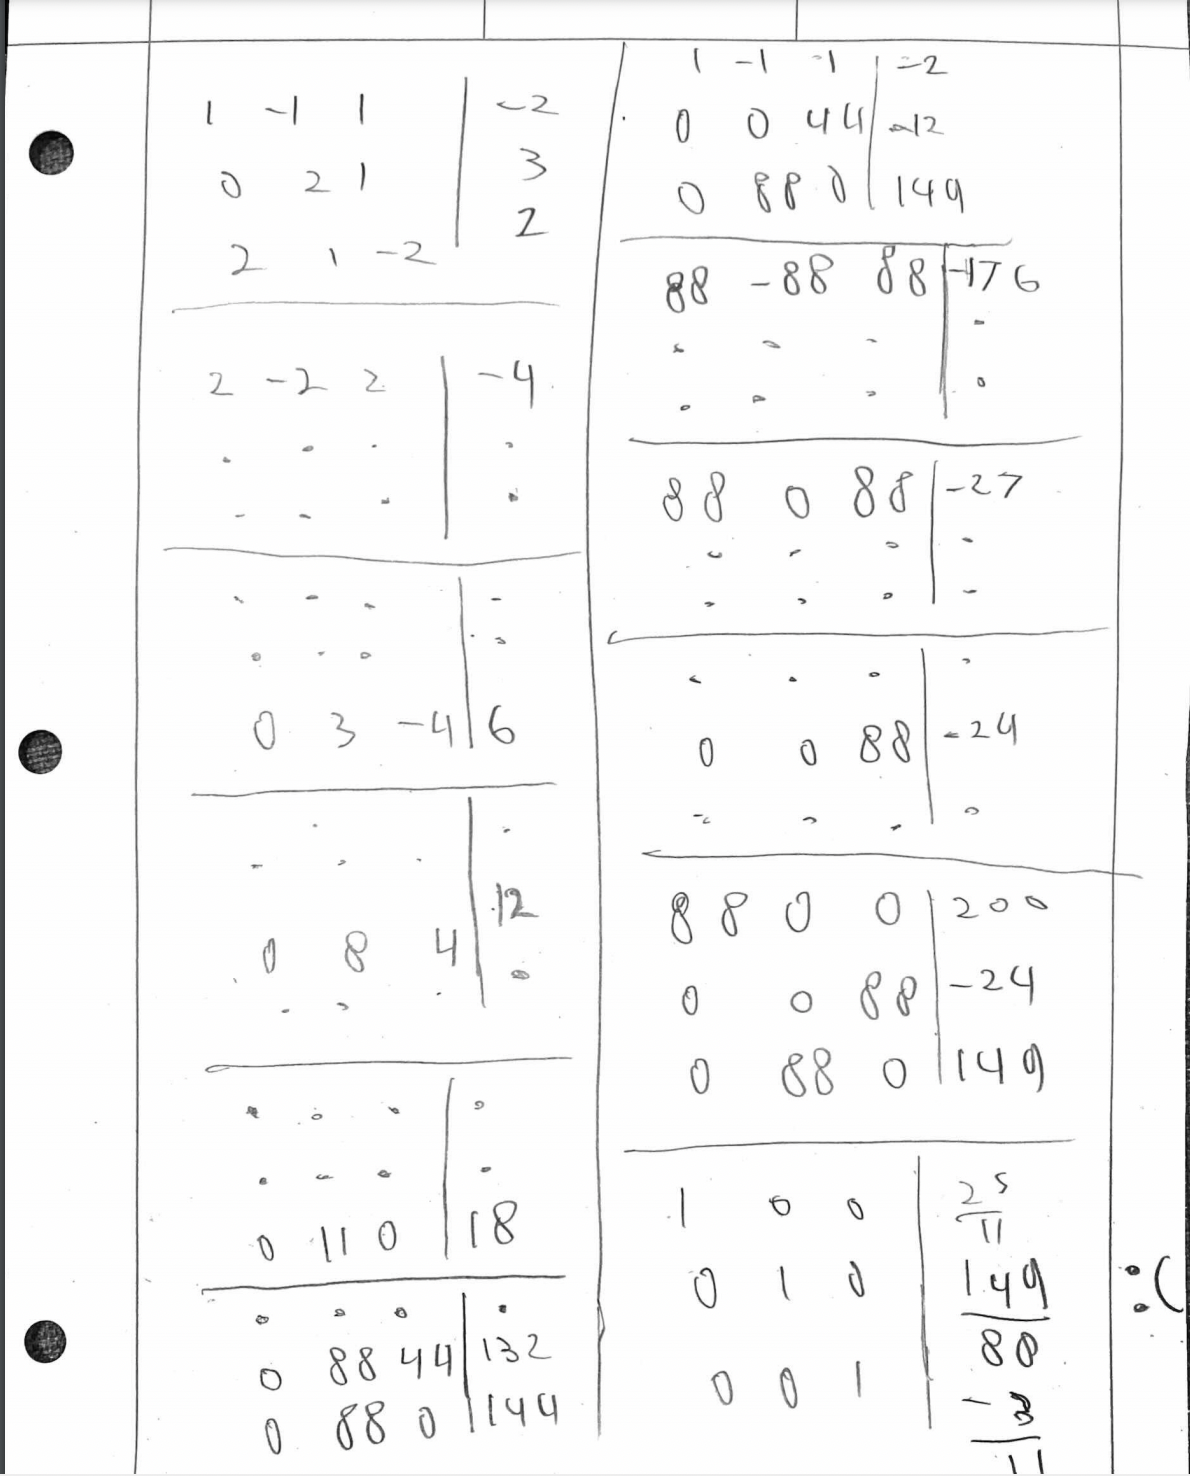 1 -1 1 | -2
0 2 1 | 3
2 1 -2 | 2
2 -2 2 | -4
. . . | .
. . . | .
. . . | .
. . . | .
0 3 -4 | 6
. . . | .
0 8 4 | 12
. . . | .
. . . | .
. . . | .
0 11 0 | 18
. . . | .
0 88 44 | 132
0 88 0 | 144
1 -1 -1 | -2
0 0 44 | -12
0 88 0 | 149
88 -88 88 | -176
. . . | .
. . . | .
88 0 88 | -27
. . . | .
. . . | .
. . . | .
0 0 88 | -24
. . . | .
88 0 0 | 200
0 0 88 | -24
0 88 0 | 149
1 0 0 | 25/11
0 1 0 | 149/88
0 0 1 | -3/11
:(